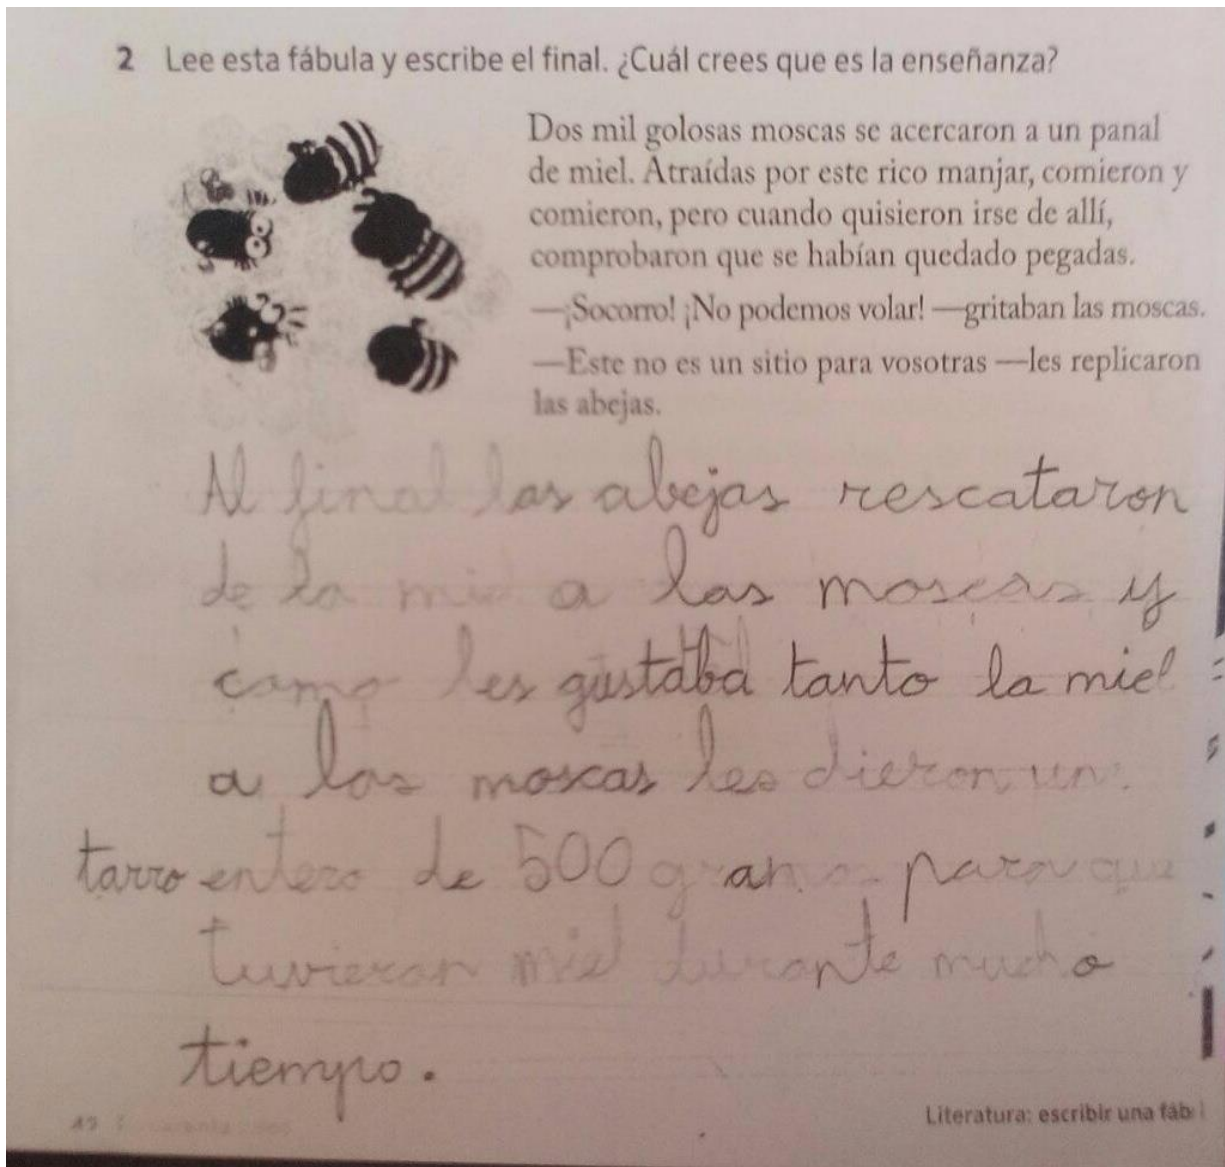 2 Lee esta fábula y escribe el final. ¿Cuál crees que es la enseñanza?
Dos mil golosas moscas se acercaron a un panal
de miel. Atraídas por este rico manjar, comieron y
comieron, pero cuando quisieron irse de allí,
comprobaron que se habían quedado pegadas.
—¡Socorro! ¡No podemos volar! —gritaban las moscas.
—Este no es un sitio para vosotras —les replicaron
las abejas.
Al final las abejas rescataron
de la miel a las moscas y
como les gustaba tanto la miel
a las moscas les dieron un
tarro entero de 500 gramos para que
tuvieran miel durante mucho
tiempo.
Literatura: escribir una fáb